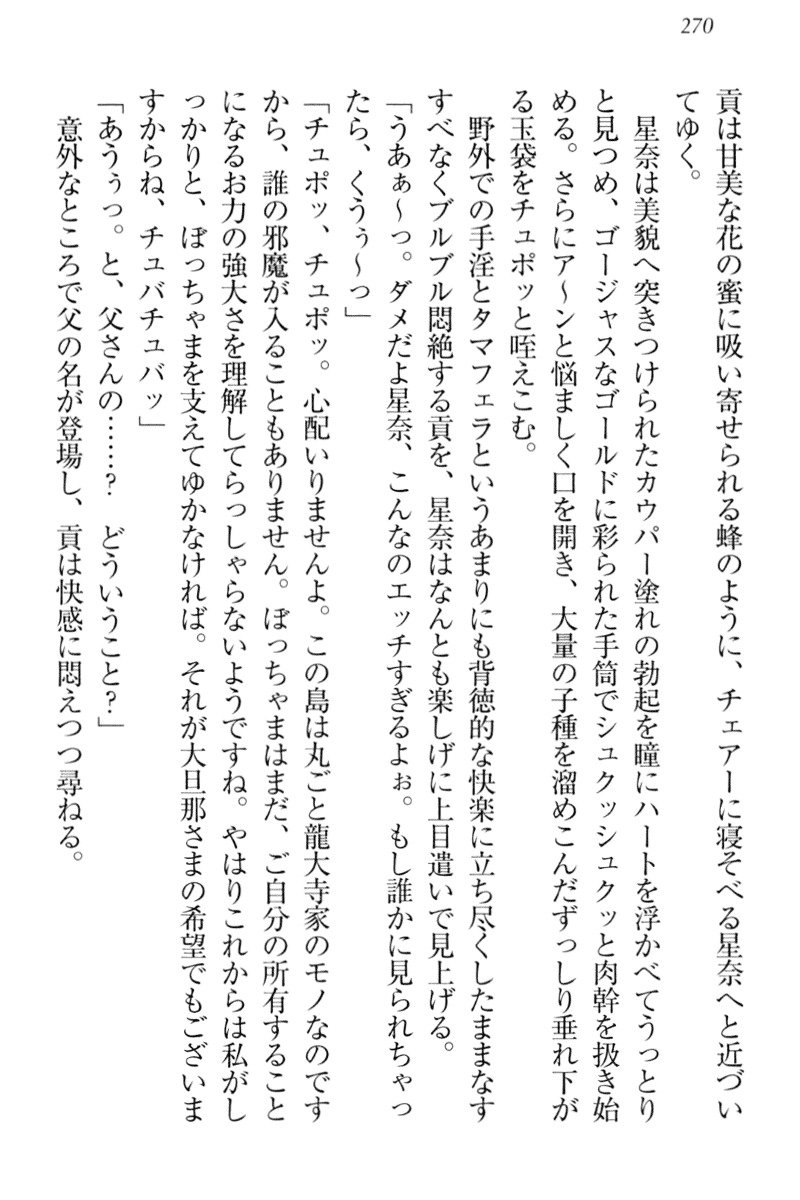 270
貢は甘美な花の蜜に吸い寄せられる蜂のように、チェアーに寝そべる星奈へと近づい
てゆく。
星奈は美貌へ突きつけられたカウパー塗れの勃起を瞳にハートを浮かべてうっとり
と見つめ、ゴージャスなゴールドに彩られた手筒でシュクッシュクッと肉幹を扱き始
める。さらにア〜ンと悩ましく口を開き、大量の子種を溜めこんだずっしり垂れ下が
る玉袋をチュポッと咥えこむ。
野外での手淫とタマフェラというあまりにも背徳的な快楽に立ち尽くしたままなす
すべなくブルブル悶絶する貢を、星奈はなんとも楽しげに上目遣いで見上げる。
「うあぁ〜っ。ダメだよ星奈、こんなのエッチすぎるよぉ。もし誰かに見られちゃっ
たら、くうぅ〜っ」
「チュポッ、チュポッ。心配いりませんよ。この島は丸ごと龍大寺家のモノなのです
から、誰の邪魔が入ることもありません。ぼっちゃまはまだ、ご自分の所有すること
になるお力の強大さを理解してらっしゃらないようですね。やはりこれからは私がし
っかりと、ぼっちゃまを支えてゆかなければ。それが大旦那さまの希望でもございま
すからね、チュバチュバッ」
「あうぅっ。と、父さんの……？　どういうこと？」
意外なところで父の名が登場し、貢は快感に悶えつつ尋ねる。